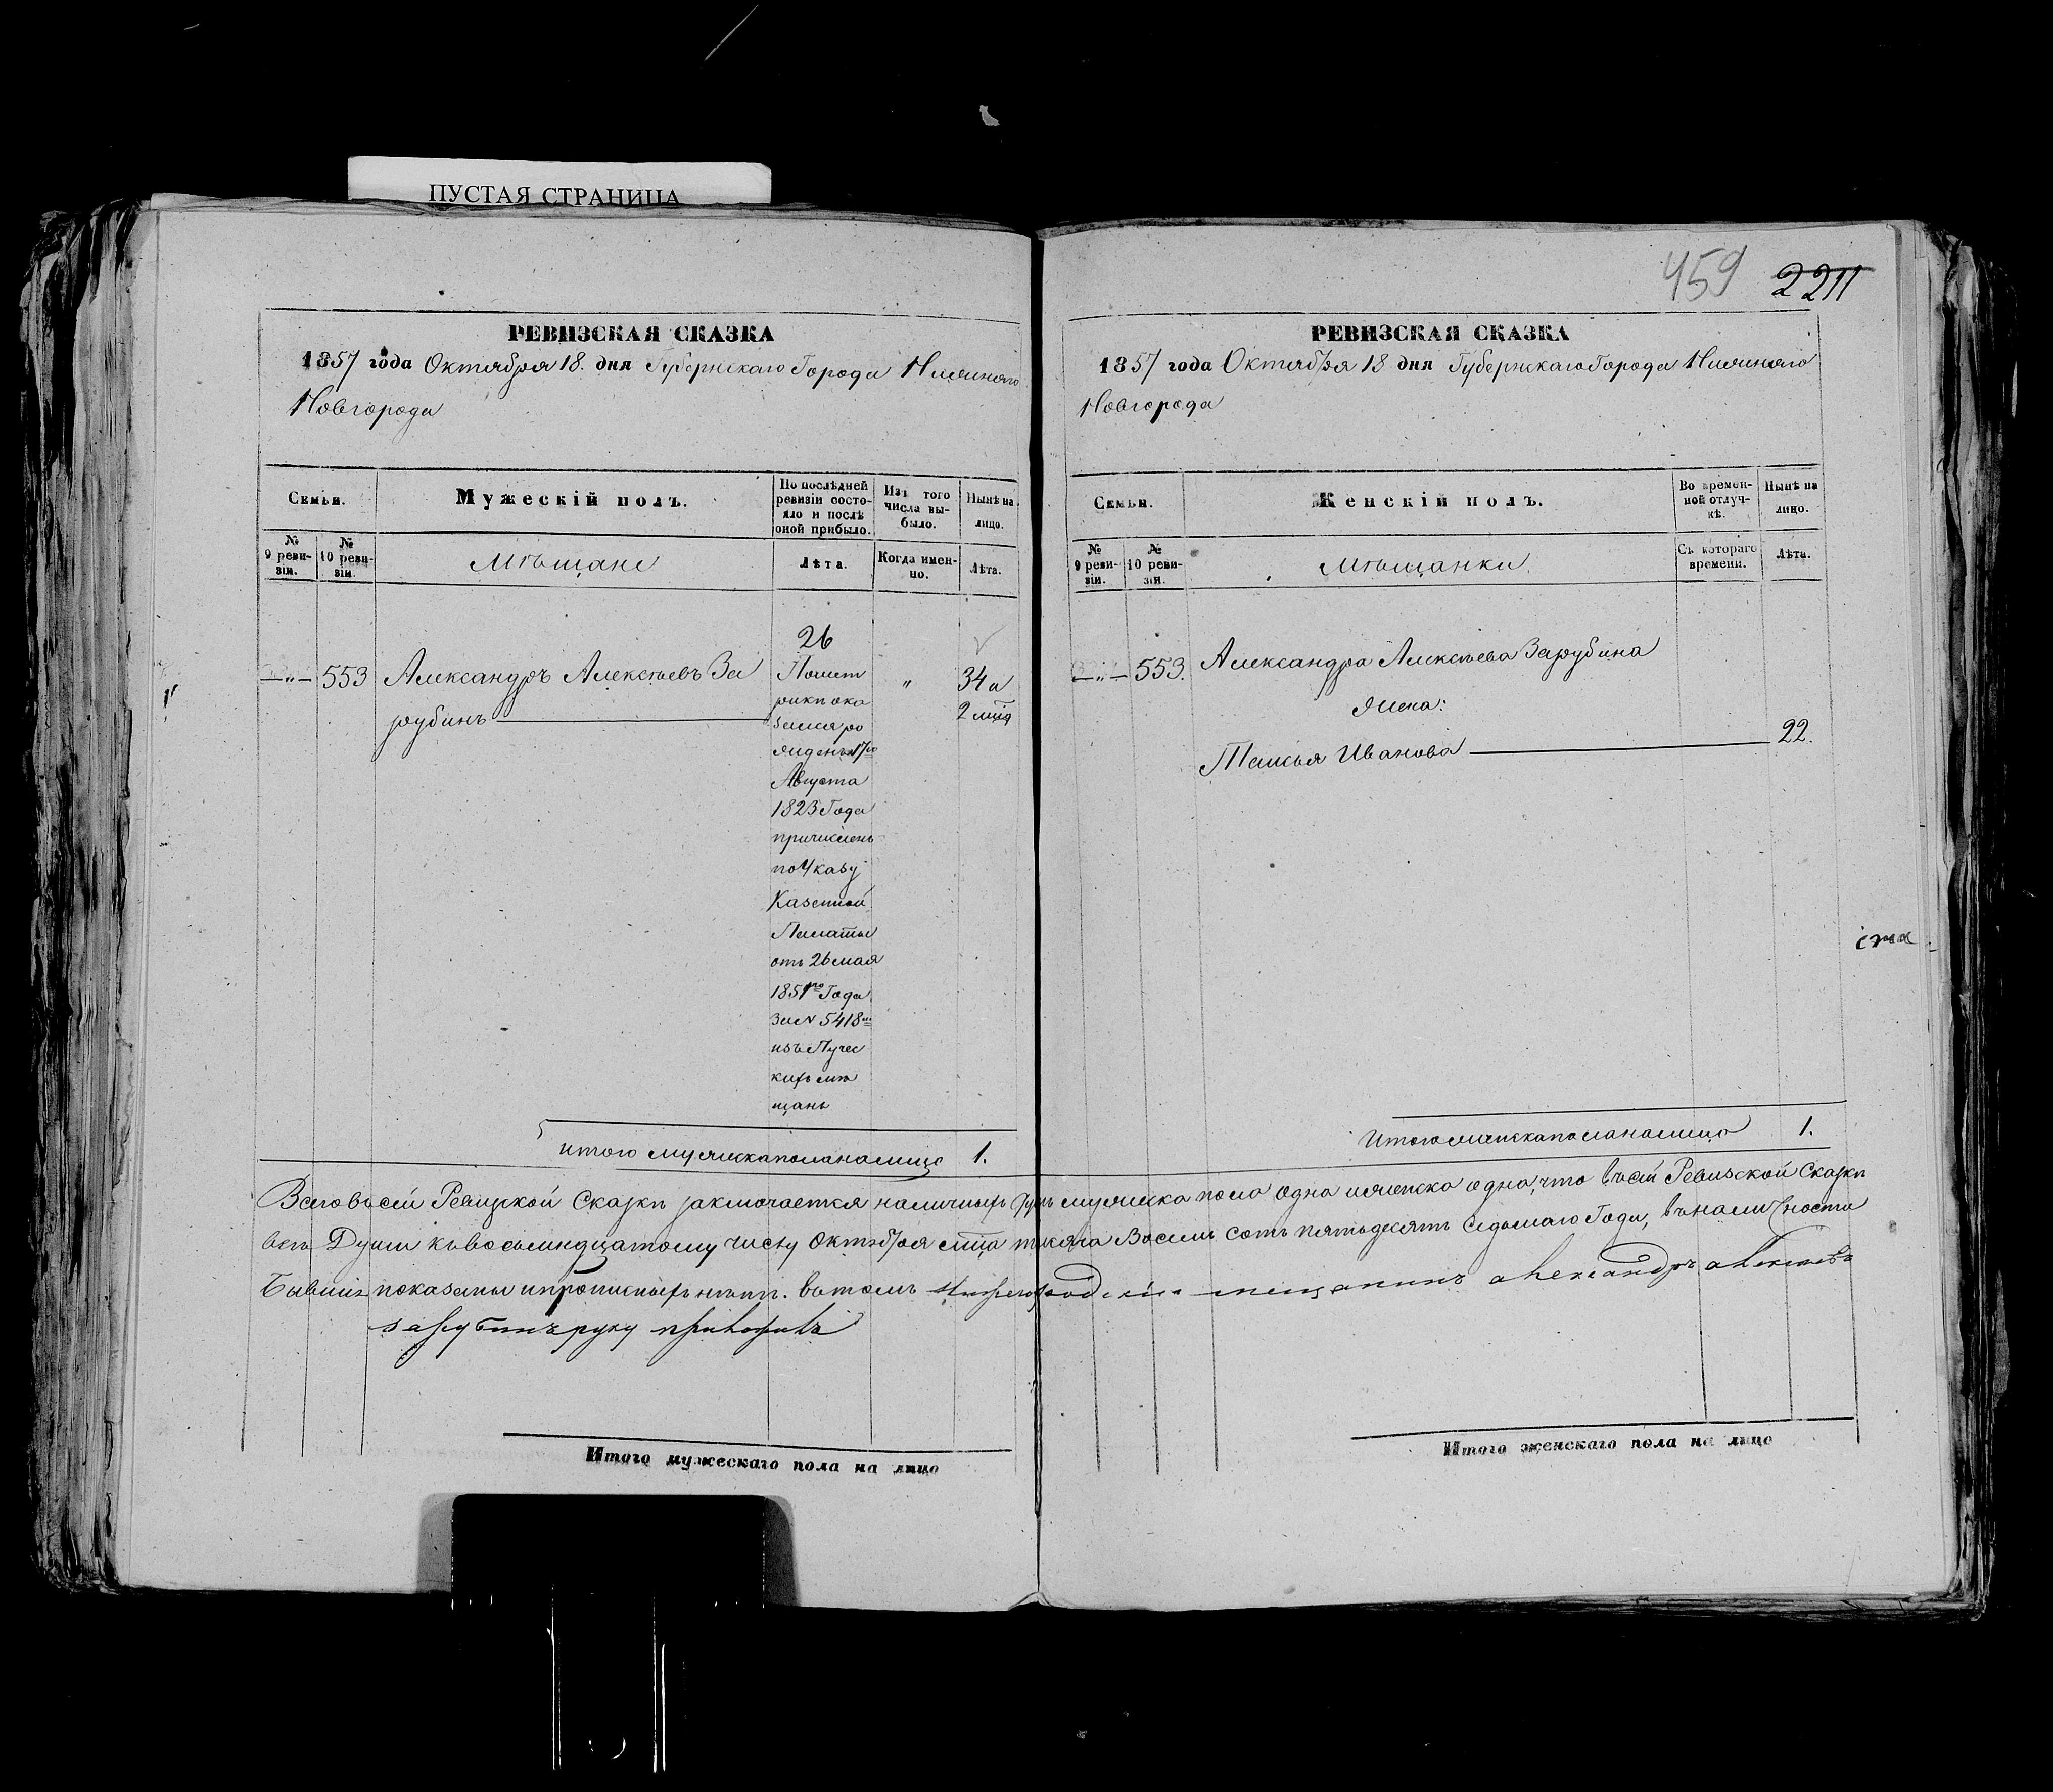 ПУСТАЯ СТРАНИЦА
459 2211
РЕВИЗСКАЯ СКАЗКА
1857 года Октября 18. дня Губернскаго Города Нижняго
Новгорода
Семьи.
Мужескій полъ.
По послѣдней
ревизіи состо-
яло и послѣ
оной прибыло.
Изъ того
числа вы-
было.
Нынѣ на
лицо.
№
9 реви-
зіи.
№
10 реви-
зіи.
Мѣщане
Лѣта.
Когда имен-
но.
Лѣта.
26
553 Александръ Алексѣевъ За
рубинъ
По мет
рики ока
зался ро
жденъ 17го
Августа
1823 Года
причисленъ
по Указу
Казенной
Палаты
отъ 26 мая
1851го Года
За N 5418
изъ Пучес
кихъ мѣ
щанъ
"
34 и
2 мца
итого мужеска пола на лицо 1.
РЕВИЗСКАЯ СКАЗКА
1857 года Октября 18 дня Губернскаго Города Нижняго
Новгорода
Семьи.
Женскій полъ.
Во времен-
ной отлуч-
кѣ.
Нынѣ на
лицо.
№
9 реви-
зіи.
№
10 реви-
зіи.
Мѣщанки
Съ котораго
времени.
Лѣта.
553. Александра Алексѣева Зарубина
жена:
Таисья Иванова 22.
Итого женска пола на лицо 1.
Всего въ сей Ревизской Сказки заключается наличныхъ душъ мужеска пола одна женска одна, что въ сей Ревизской Сказки
всѣ Души къ восьмнадцатому числу Октября мца тысяча Восемь сотъ пятьдесятъ Седьмаго Года, въ наличности
Бывшія показаны и прописныхъ нѣтъ. въ томъ Нижегородскій мещанинъ александръ алексѣевъ
зарубинъ руку приложилъ
Итого мужескаго пола на лицо
Итого женскаго пола на лицо